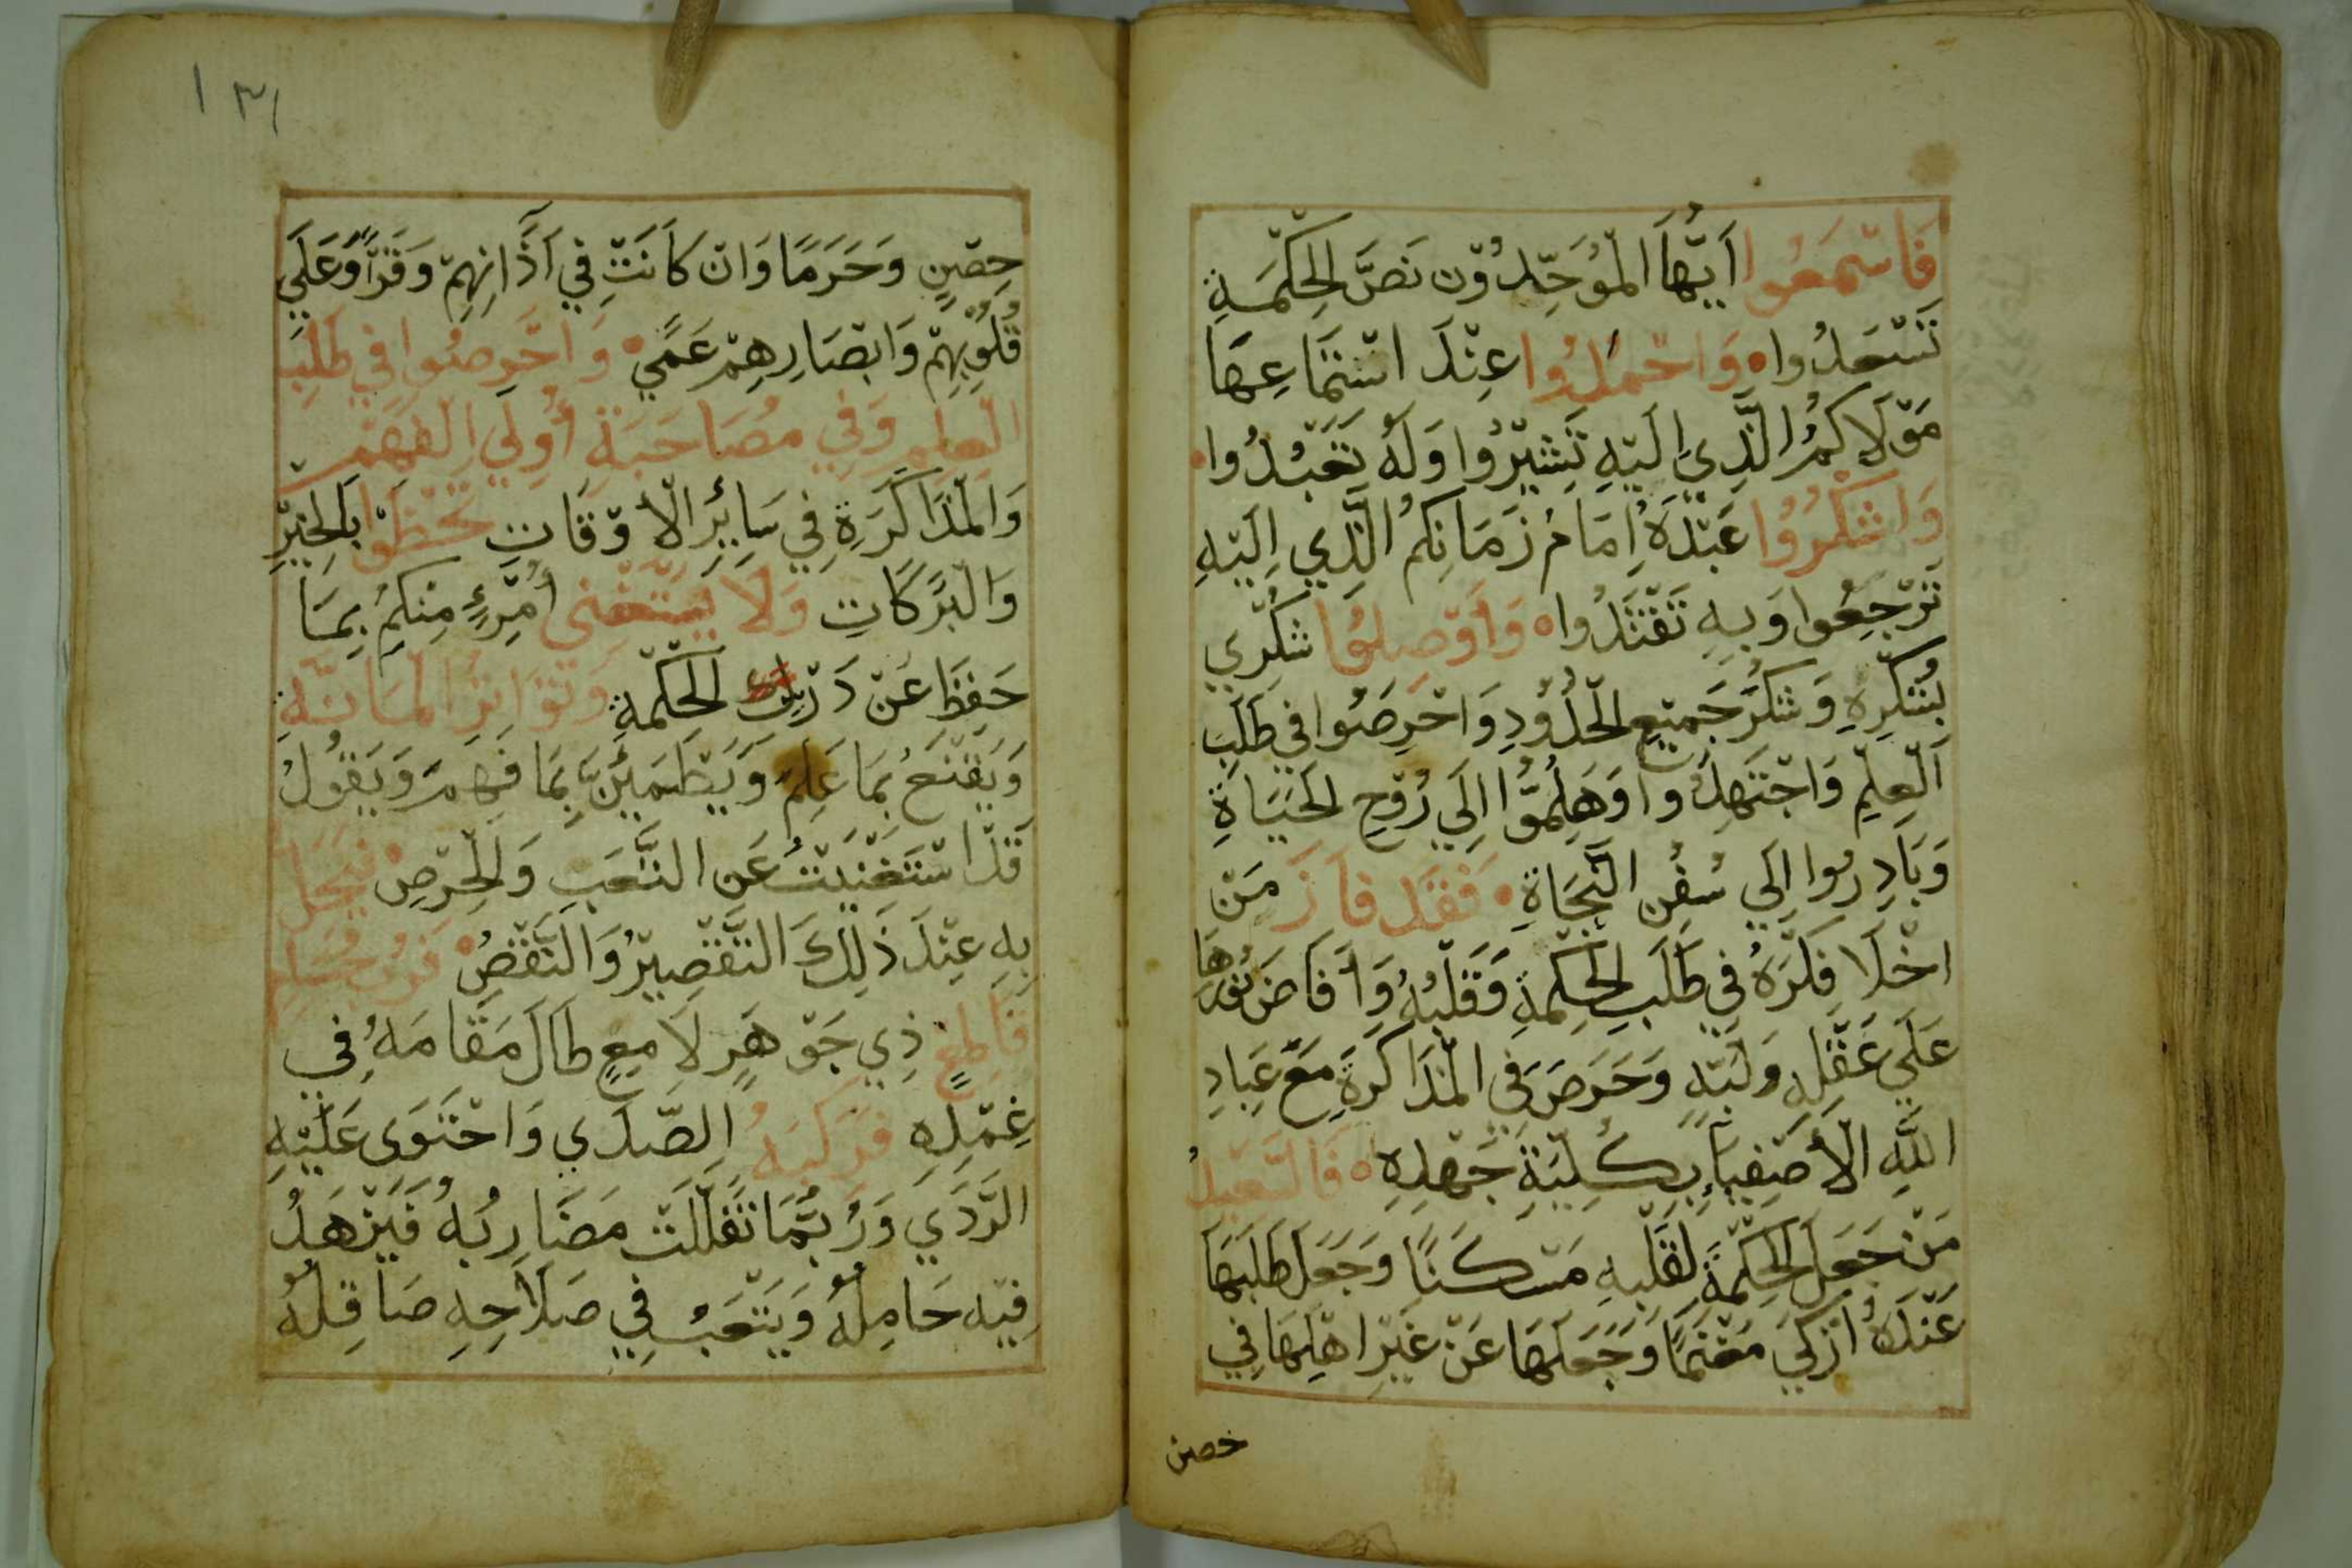 فَاسْمَعُوا أَيُّهَا الْمُوَحِّدُوْن نَصَّ الْحِكْمَةِ
تَسْعَدُوا ه وَاحْمَدُوا عِنْدَ اسْتِمَاعِهَا
مَوْلَاكُمُ الَّذِي إِلَيْهِ تُشِيْرُوْا وَلَهُ تَعْبُدُوا
وَاشْكُرُوْا عَبْدَهُ إِمَامُ زَمَانِكُمُ الَّذِي إِلَيْهِ
تَرْجِعُوا وَبِهِ تَقْتَدُوا ه وَأَوْصِلُوا شُكْرِي
بِشُكْرِهِ وَشُكْرَ جَمِيْعِ الْحُدُوْدِ وَاحْرِصُوا فِي طَلَبِ
الْعِلْمِ وَاجْتَهِدُوا وَهَلِمُّوْا إِلَي رُوْحِ الْحَيَاةِ
وَبَادِرُوا إِلَي سُفُنِ النَّجَاةِ فَقَدْ فَازَ مَنْ
اخْلَا فِكْرَهُ فِي طَلَبِ الْحِكْمَةِ وَقَلْبُهُ وَأَفَاضَ نُوْرَهَا
عَلَي عَقْلِهِ وَلُبِّهِ وَحَرَصَ فِي الْمُذَاكَرَةِ مَعَ عِبَادِ
اللَّهِ الْأَصْفِيَاءِ بِكُلِّيَةِ جَهْدِهِ ه فَالسَّعِيْدُ
مَنْ جَعَلَ الْحِكْمَةَ لِقَلْبِهِ مَسْكَنًا وَجَعَلَ طَلَبَهَا
عِنْدَهُ أَزْكَي مَغْنَمًا وَجَعَلَهَا عَنْ غَيْرِ اهْلِهَا فِي
حصن
١٣١
حِصْنٍ وَحَرَمًا وَانْ كَانَتْ فِي آذَانِهِمْ وَقْرًا وَعَلَي
قُلُوْبِهِمْ وَابْصَارِهِمْ عَمًي وَاحْرِصُوا فِي طَلَبِ
الْعِلْمِ وَفِي مُصَاحَبَةِ أُولِي الْفَهْمِ
وَالْمُذَاكَرَةِ فِي سَائِرِ الْأَوْقَاتِ تَحْظَوْا بِالْخَيْرِ
وَالْبَرَكَاتِ وَلَا يَسْتَغْنِي أُمْرِءٍ مِنْكُمْ بِمَا
حَفِظَ عَنْ دَرْسِ الْحِكْمَةِ وَتَوَاتُرِ الْمَادَّةِ
وَيَقْنَعُ بِمَا عَلِمَ وَيَطْمَئِنُّ بِمَا فَهِمَ وَيَقُوْلُ
قَدِ اسْتَغْنَيْتُ عَنِ التَّعَبِ وَالْحِرْصِ فَيَحِلُّ
بِهِ عِنْدَ ذَلِكَ التَّقْصِيْرُ وَالنَّقْصُ فَرُبَّ حُسَامٍ
قَاطِعٍ ذِي جَوْهَرٍ لَامِعٍ طَالَ مَقَامَهُ فِي
غِمْدِهِ فَرَكِبَهُ الصَّدَي وَاحْتَوَى عَلَيْهِ
الرَّدَي وَرُبَّمَا تَفَلَّلَتْ مَضَارِبُهُ فَيَزْهَدُ
فِيْهِ حَامِلُهُ وَيَتْعَبُ فِي صَلَاحِهِ صَاقِلُهُ